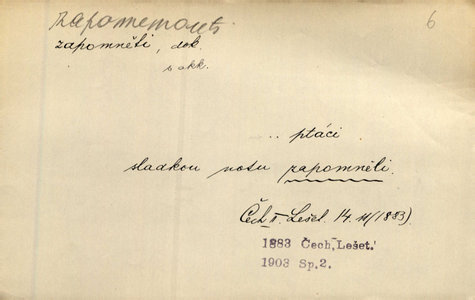 zapomenouti
6
zapomněti, dok.
s akk.
.. ptáci
sladkou notu zapomněli.
Čech S. Lešet. 14. (1883).
1883 Čech, Lešet.
1903 Sp.2.